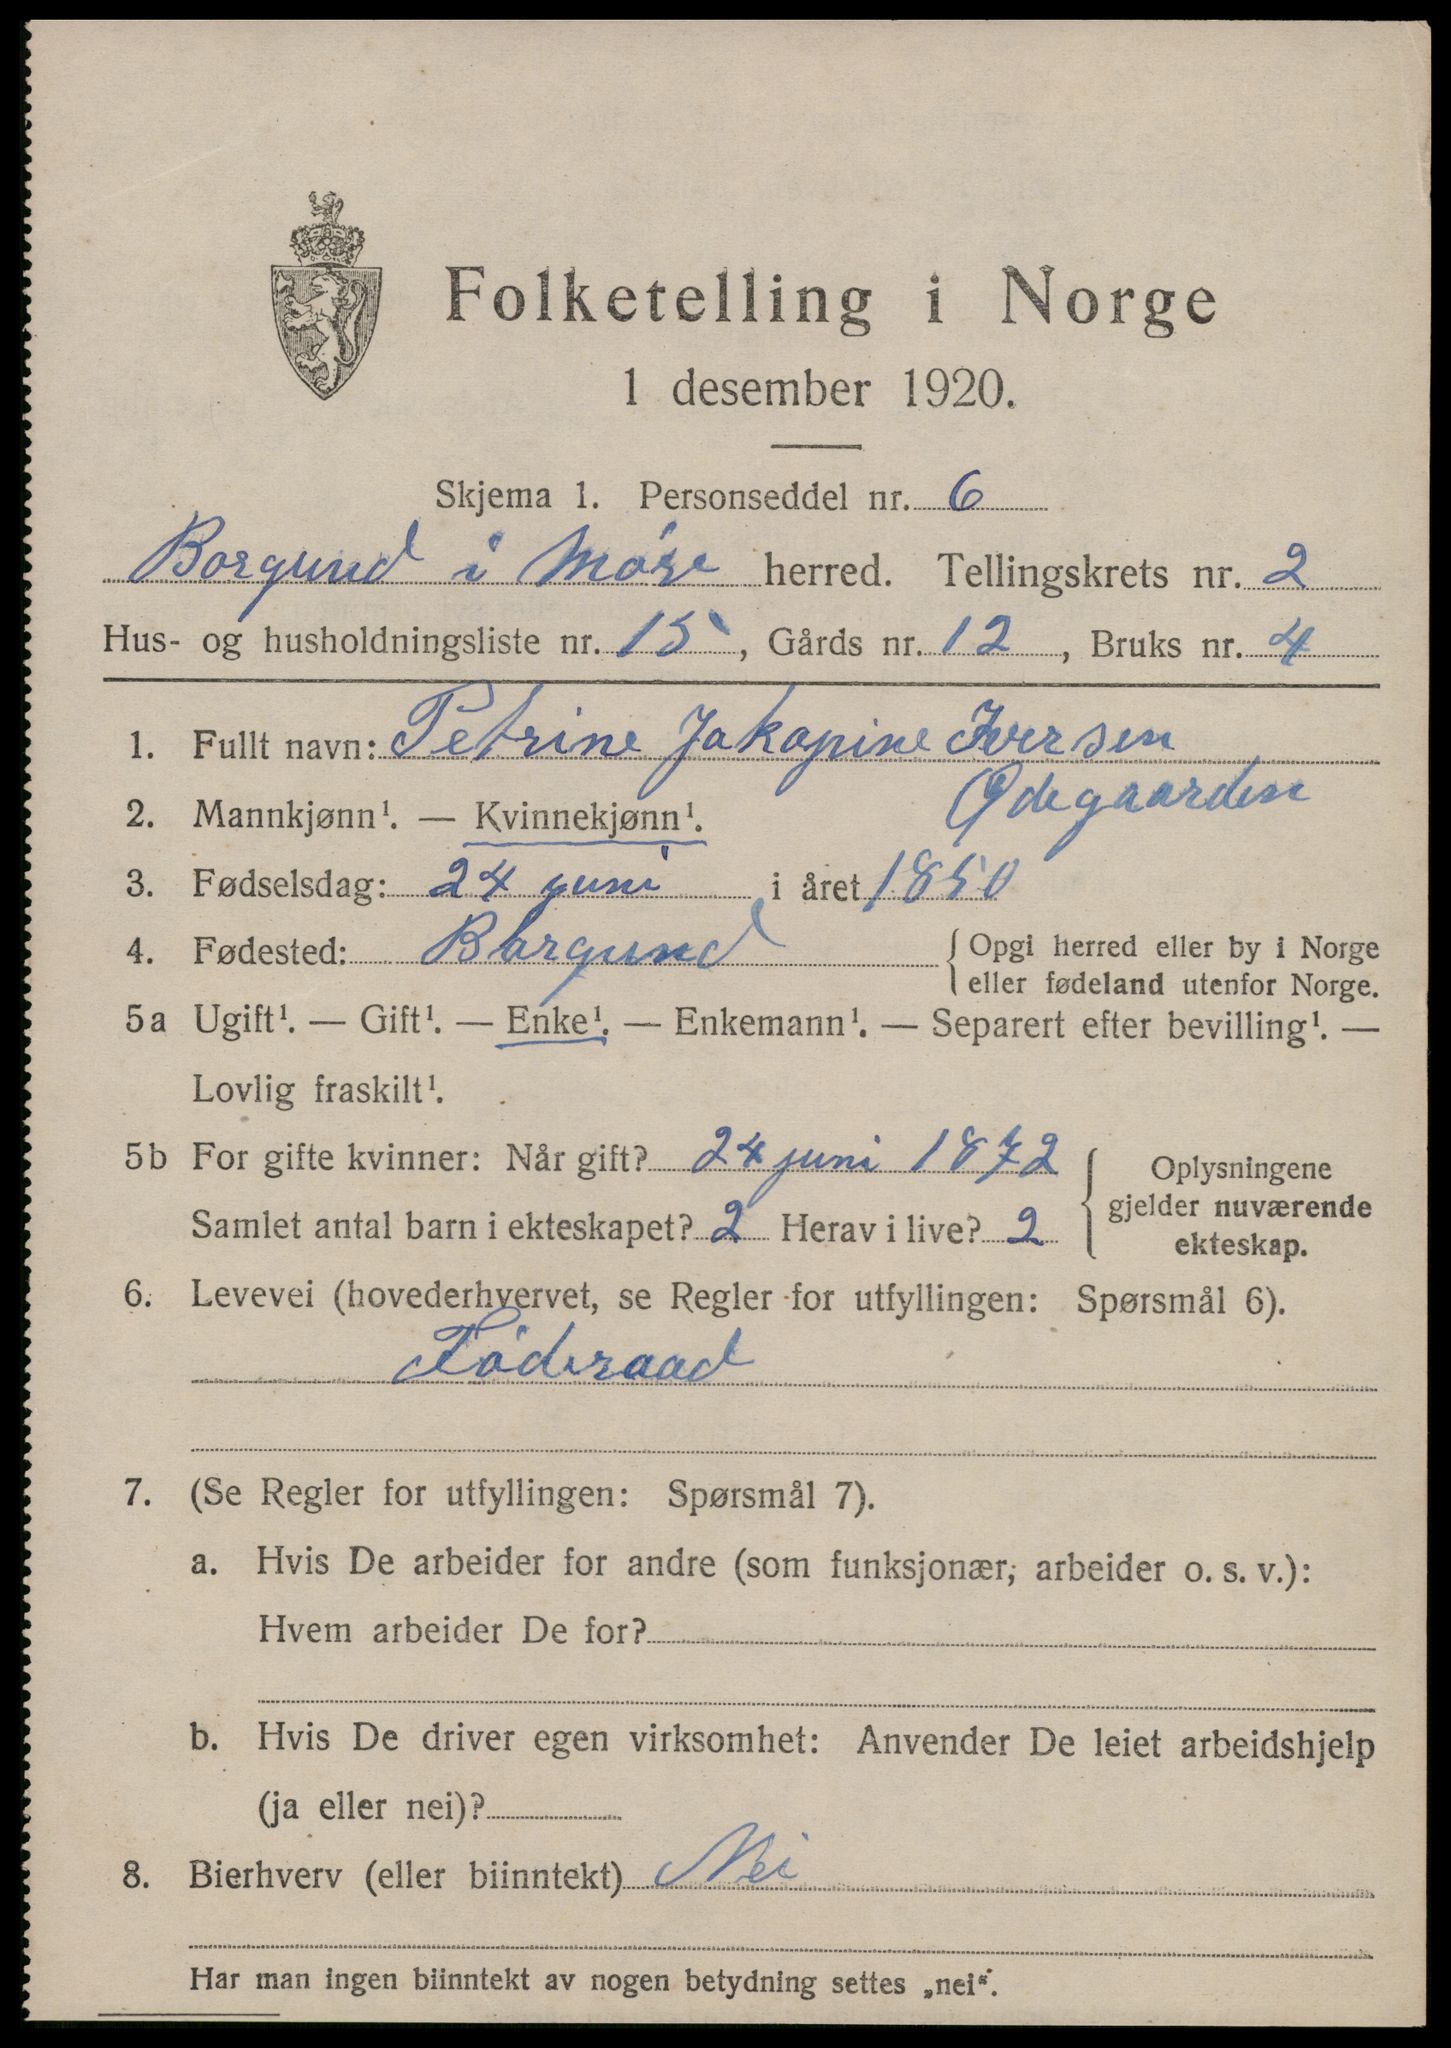 Folketelling i Norge
1 desember 1920.
Skjema 1. Personseddel nr. 6
Borgund i Møre herred. Tellingskrets nr. 2
Hus- og husholdningsliste nr. 15, Gårds nr. 12, Bruks nr. 4
1. Fullt navn: Petrine Jakopine Iversen
Ødegaarden
2. Mannkjønn¹. — Kvinnekjønn¹.
3. Fødselsdag: 24 juni i året 1850
4. Fødested: Borgund { Opgi herred eller by i Norge
eller fødeland utenfor Norge.
5a Ugift¹. — Gift¹. — Enke¹. — Enkemann¹. — Separert efter bevilling¹. —
Lovlig fraskilt¹.
5b For gifte kvinner: Når gift? 24 juni 1872
Samlet antal barn i ekteskapet? 2 Herav i live? 2
Oplysningene
gjelder nuværende
ekteskap.
6. Levevei (hovederhvervet, se Regler for utfyllingen: Spørsmål 6).
Føderaad
7. (Se Regler for utfyllingen: Spørsmål 7).
a. Hvis De arbeider for andre (som funksjonær, arbeider o. s. v.):
Hvem arbeider De for?
b. Hvis De driver egen virksomhet: Anvender De leiet arbeidshjelp
(ja eller nei)?
8. Bierhverv (eller biinntekt) Nei
Har man ingen biinntekt av nogen betydning settes „nei".